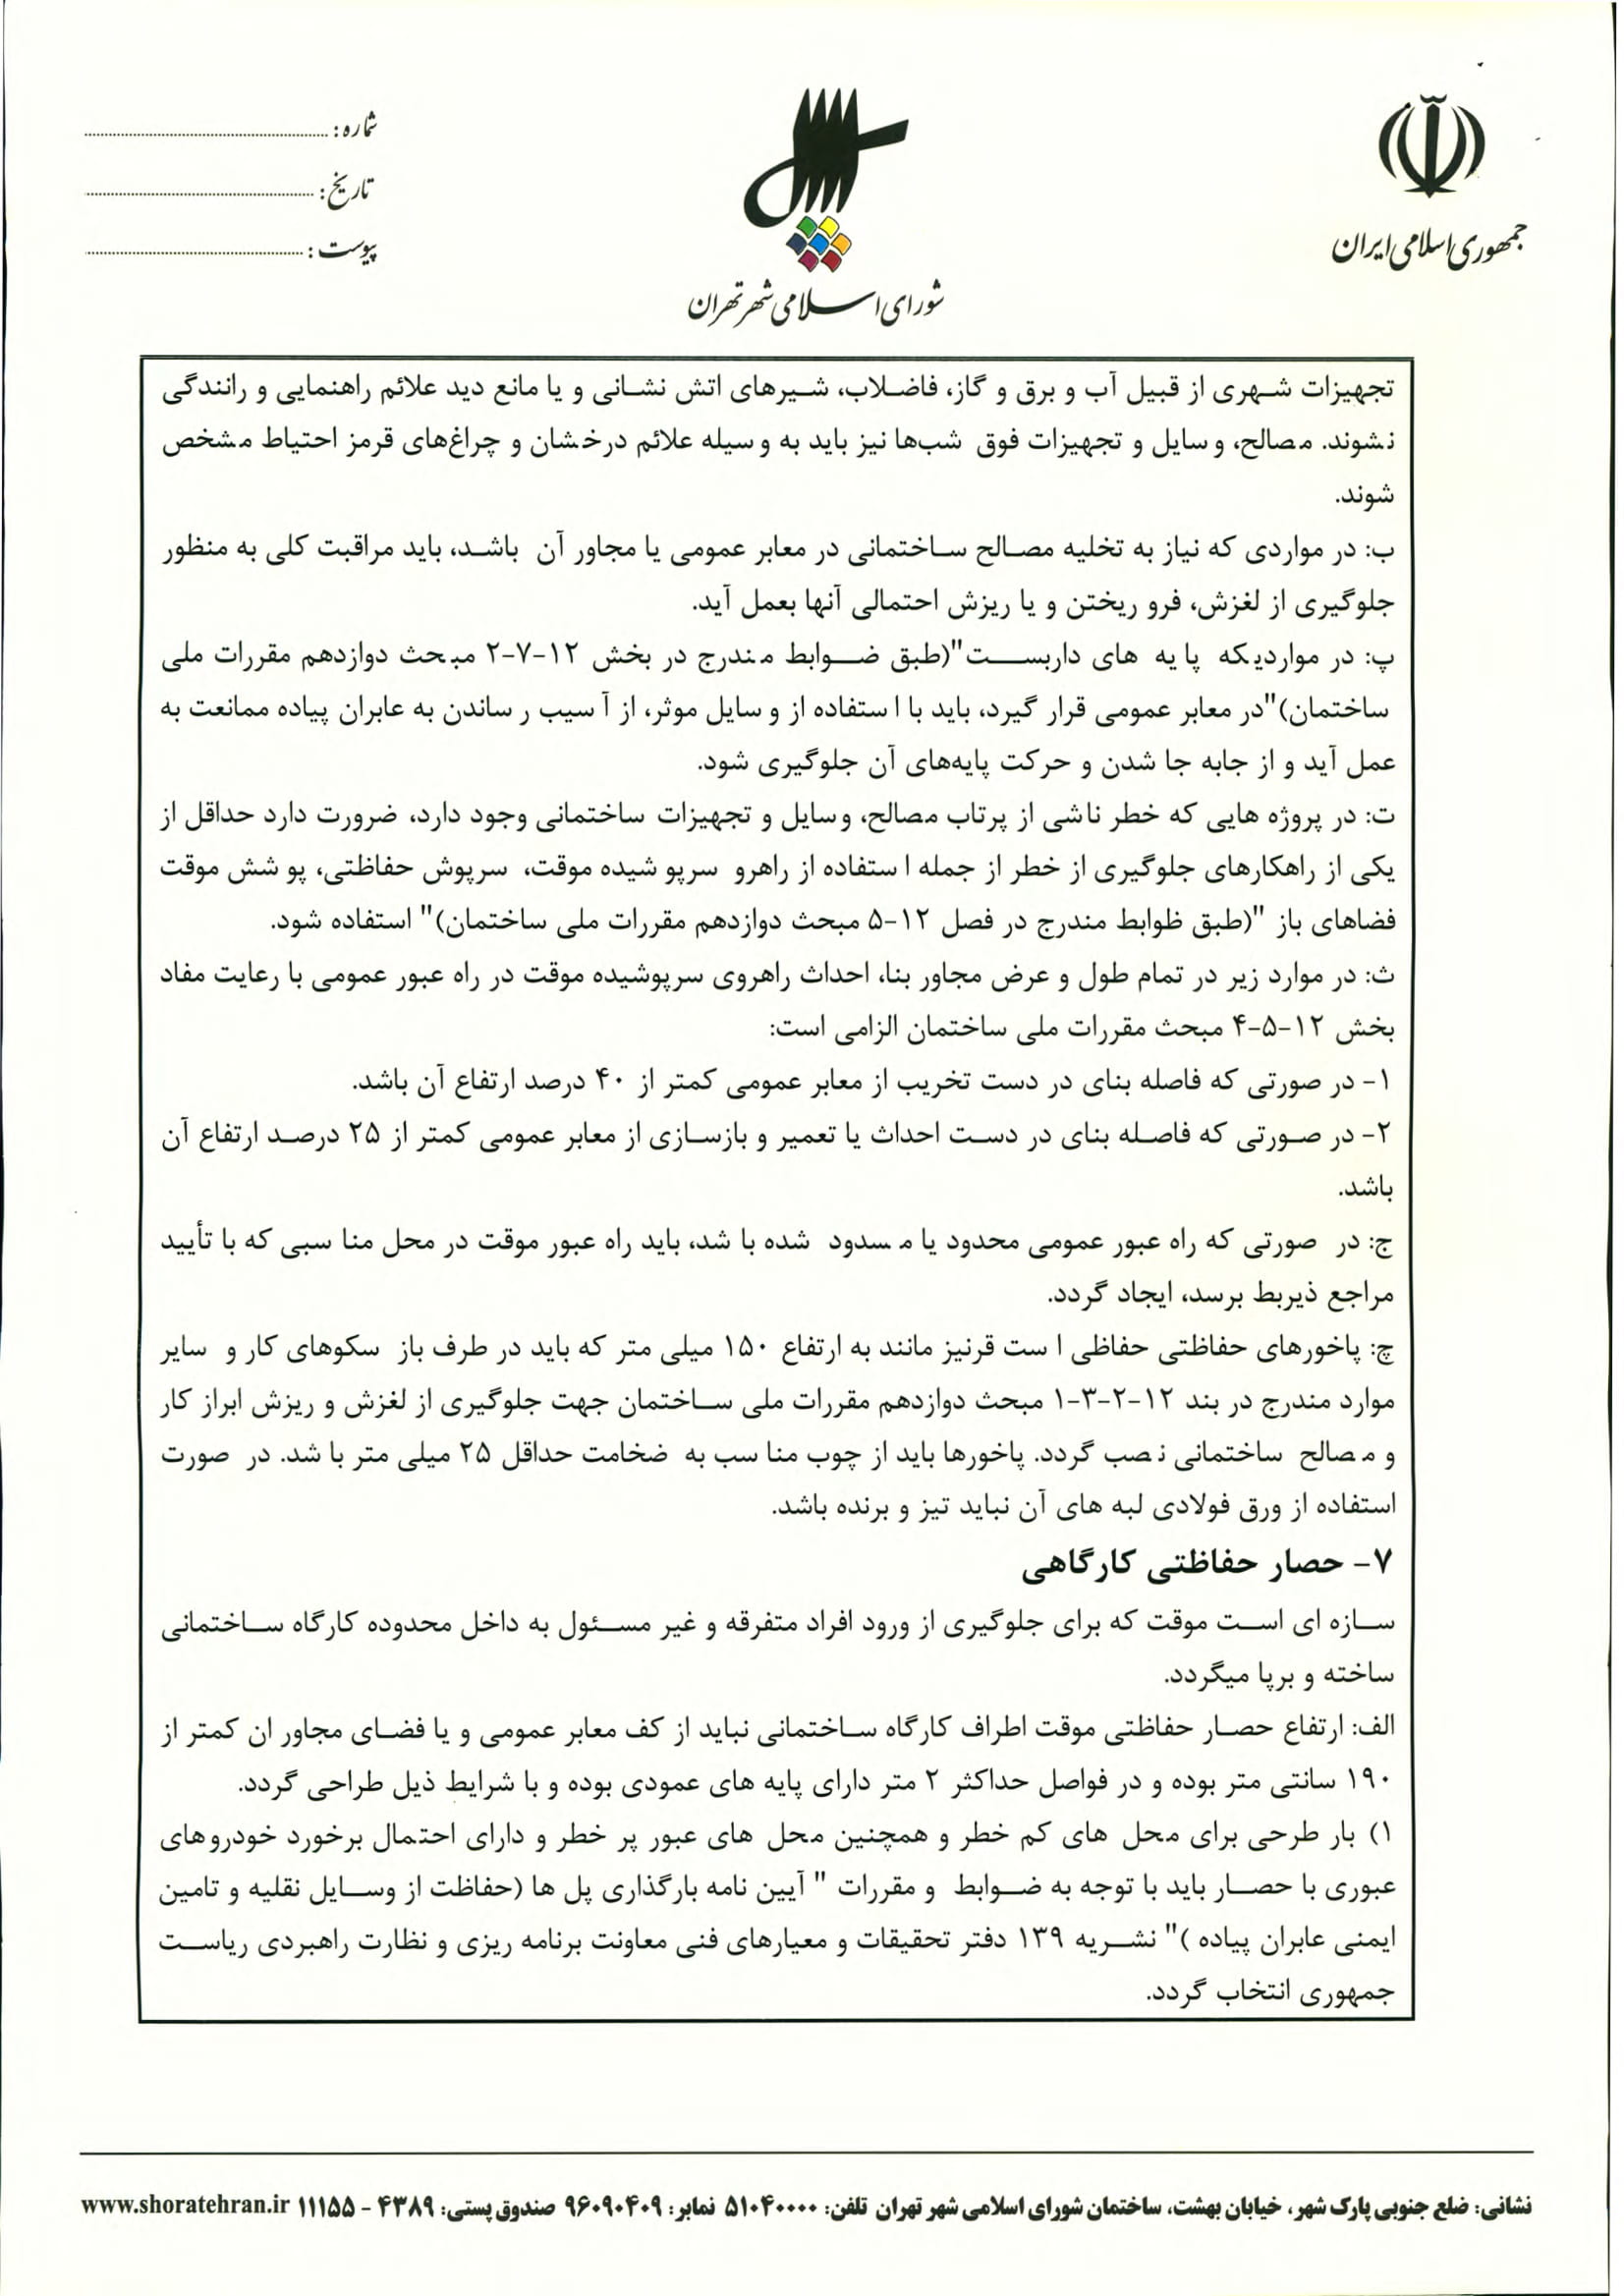 جمهوری اسلامی ایران
شورای اسلامی شهر تهران
شماره :
تاریخ :
پیوست :
تجهیزات شهری از قبیل آب و برق و گاز، فاضلاب، شیرهای اتش نشانی و یا مانع دید علائم راهنمایی و رانندگی
نشوند. مصالح، وسایل و تجهیزات فوق شب‌ها نیز باید به وسیله علائم درخشان و چراغ‌های قرمز احتیاط مشخص
شوند.
ب: در مواردی که نیاز به تخلیه مصالح ساختمانی در معابر عمومی یا مجاور آن باشد، باید مراقبت کلی به منظور
جلوگیری از لغزش، فرو ریختن و یا ریزش احتمالی آنها بعمل آید.
پ: در مواردیکه پایه های داربست"(طبق ضوابط مندرج در بخش ۱۲-۷-۲ مبحث دوازدهم مقررات ملی
ساختمان)"در معابر عمومی قرار گیرد، باید با استفاده از وسایل موثر، از آسیب رساندن به عابران پیاده ممانعت به
عمل آید و از جابه جا شدن و حرکت پایه‌های آن جلوگیری شود.
ت: در پروژه هایی که خطر ناشی از پرتاب مصالح، وسایل و تجهیزات ساختمانی وجود دارد، ضرورت دارد حداقل از
یکی از راهکارهای جلوگیری از خطر از جمله استفاده از راهرو سرپوشیده موقت، سرپوش حفاظتی، پوشش موقت
فضاهای باز "(طبق ظوابط مندرج در فصل ۱۲-۵ مبحث دوازدهم مقررات ملی ساختمان)" استفاده شود.
ث: در موارد زیر در تمام طول و عرض مجاور بنا، احداث راهروی سرپوشیده موقت در راه عبور عمومی با رعایت مفاد
بخش ۱۲-۵-۴ مبحث مقررات ملی ساختمان الزامی است:
۱- در صورتی که فاصله بنای در دست تخریب از معابر عمومی کمتر از ۴۰ درصد ارتفاع آن باشد.
۲- در صورتی که فاصله بنای در دست احداث یا تعمیر و بازسازی از معابر عمومی کمتر از ۲۵ درصد ارتفاع آن
باشد.
ج: در صورتی که راه عبور عمومی محدود یا مسدود شده باشد، باید راه عبور موقت در محل مناسبی که با تأیید
مراجع ذیربط برسد، ایجاد گردد.
چ: پاخورهای حفاظتی حفاظی است قرنیز مانند به ارتفاع ۱۵۰ میلی متر که باید در طرف باز سکوهای کار و سایر
موارد مندرج در بند ۱۲-۲-۳-۱ مبحث دوازدهم مقررات ملی ساختمان جهت جلوگیری از لغزش و ریزش ابراز کار
و مصالح ساختمانی نصب گردد. پاخورها باید از چوب مناسب به ضخامت حداقل ۲۵ میلی متر باشد. در صورت
استفاده از ورق فولادی لبه های آن نباید تیز و برنده باشد.
۷- حصار حفاظتی کارگاهی
سازه ای است موقت که برای جلوگیری از ورود افراد متفرقه و غیر مسئول به داخل محدوده کارگاه ساختمانی
ساخته و برپا میگردد.
الف: ارتفاع حصار حفاظتی موقت اطراف کارگاه ساختمانی نباید از کف معابر عمومی و یا فضای مجاور ان کمتر از
۱۹۰ سانتی متر بوده و در فواصل حداکثر ۲ متر دارای پایه های عمودی بوده و با شرایط ذیل طراحی گردد.
۱) بار طرحی برای محل های کم خطر و همچنین محل های عبور پر خطر و دارای احتمال برخورد خودروهای
عبوری با حصار باید با توجه به ضوابط و مقررات " آیین نامه بارگذاری پل ها (حفاظت از وسایل نقلیه و تامین
ایمنی عابران پیاده )" نشریه ۱۳۹ دفتر تحقیقات و معیارهای فنی معاونت برنامه ریزی و نظارت راهبردی ریاست
جمهوری انتخاب گردد.
نشانی: ضلع جنوبی پارک شهر، خیابان بهشت، ساختمان شورای اسلامی شهر تهران تلفن: ۵۱۰۴۰۰۰۰ نمابر: ۹۶۰۹۰۴۰۹ صندوق پستی: ۴۳۸۹ - ۱۱۱۵۵ www.shoratehran.ir